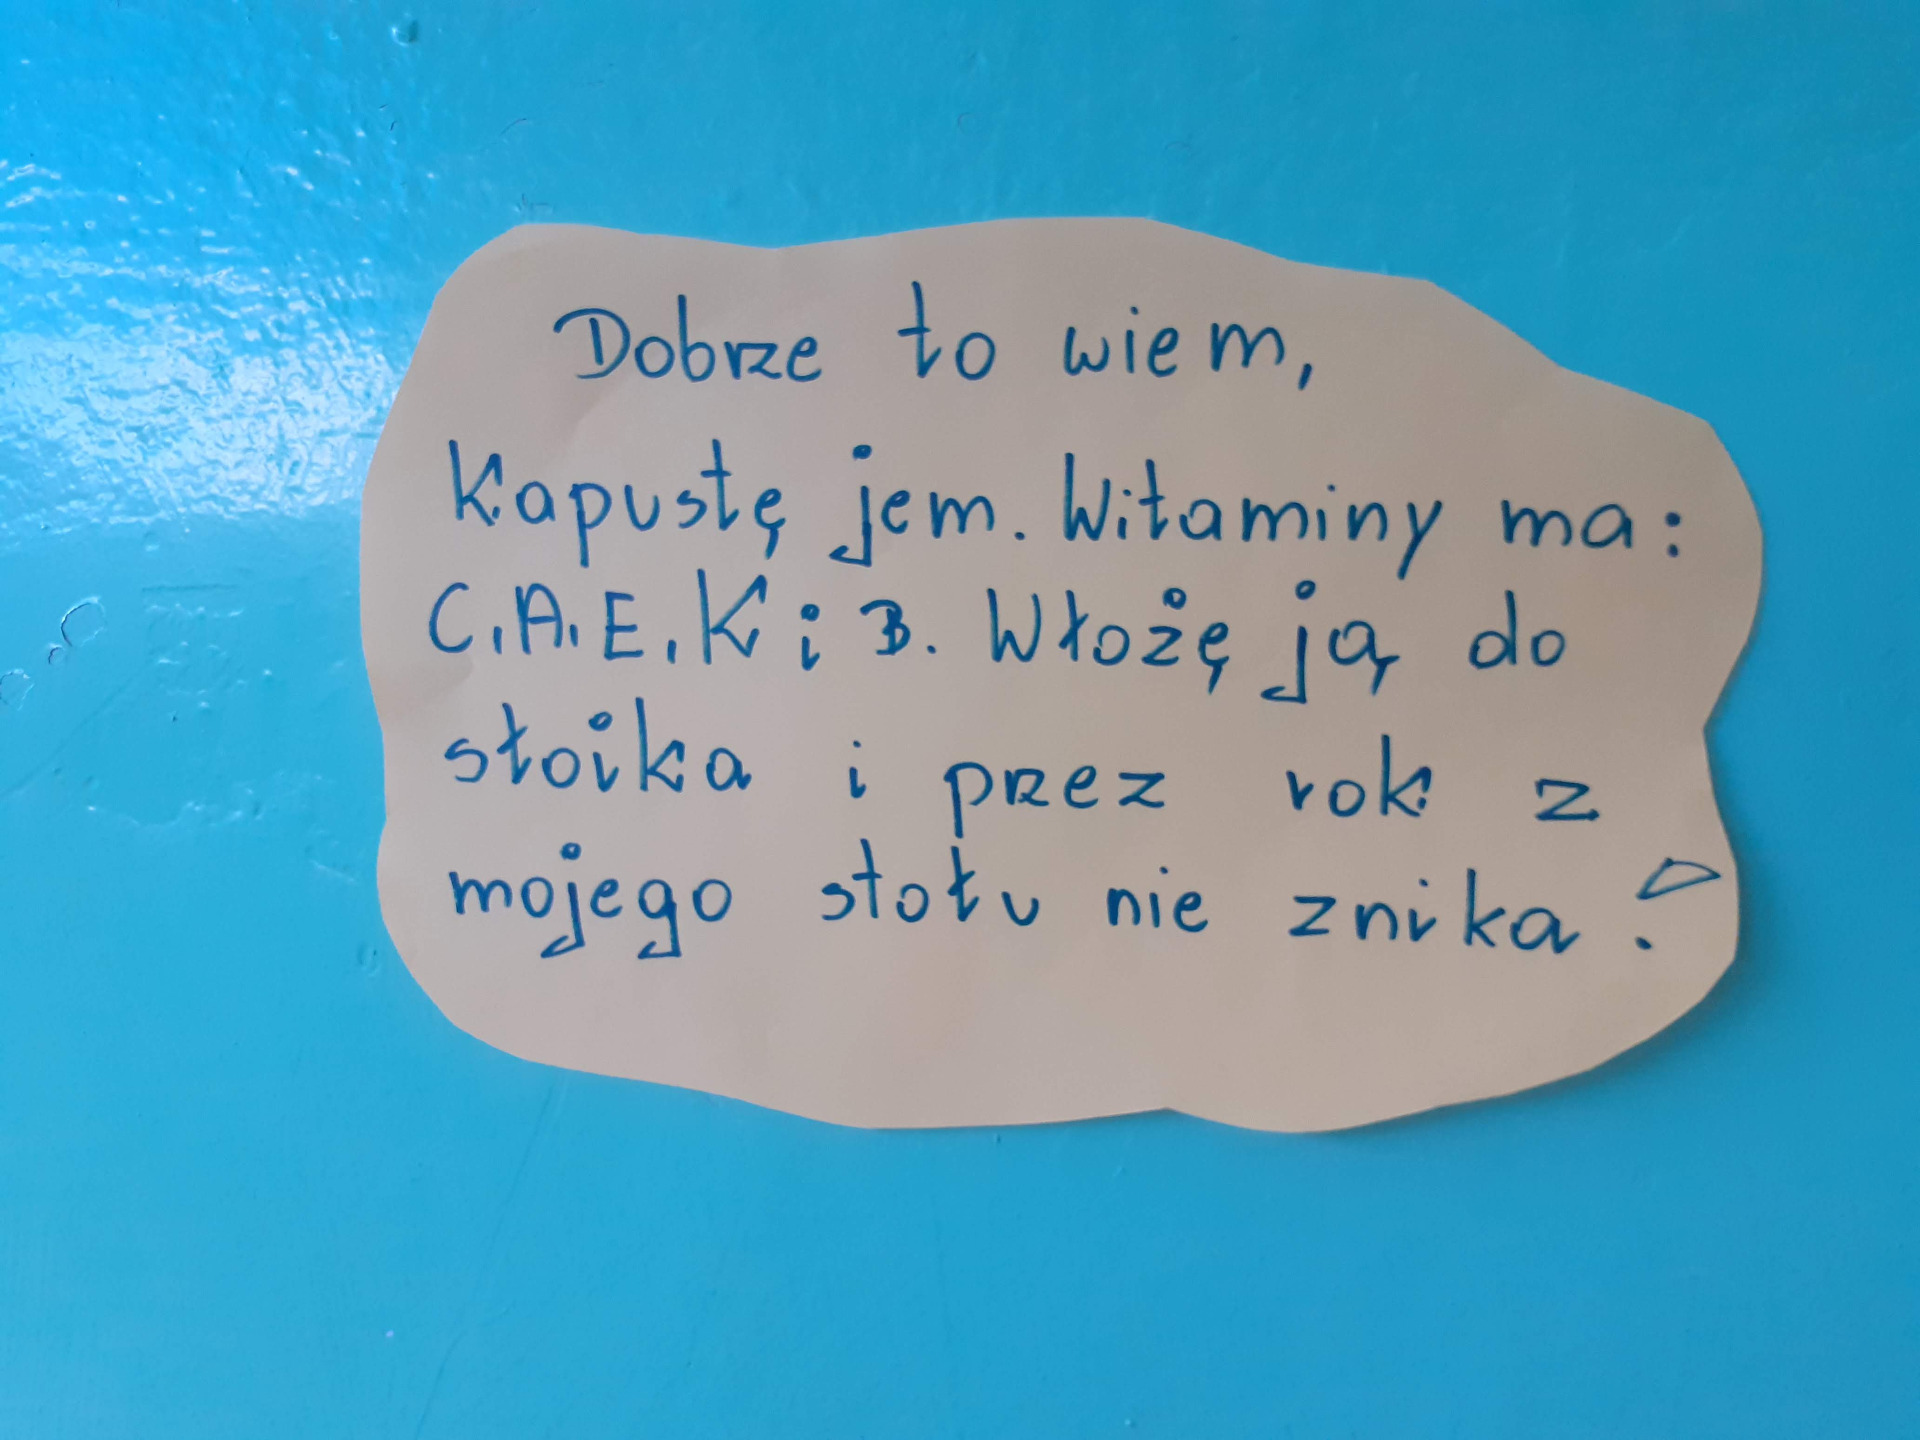 Dobrze to wiem,
Kapustę jem. Witaminy ma:
C, A, E, K i B. Włożę ją do
słoika i przez rok z
mojego stołu nie znika!